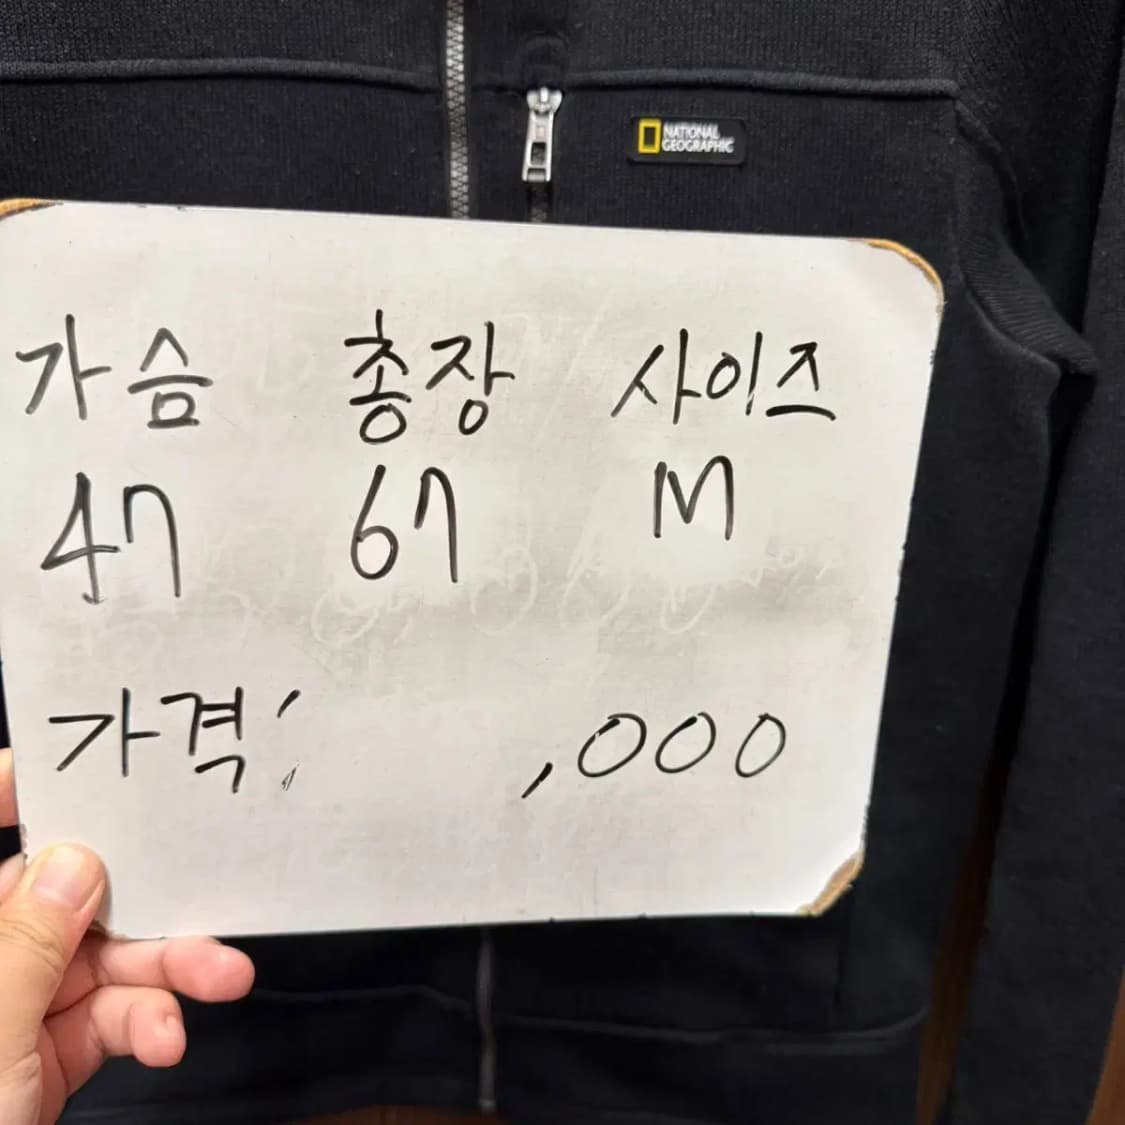 NATIONAL
GEOGRAPHIC
가슴 총장 사이즈
47 67 M
가격: ,000